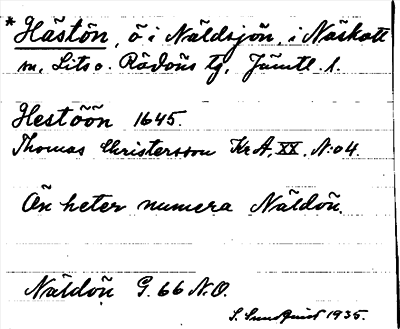 *Hästön, ö i Näldsjön, i Näskott
sn, Lits o. Rödöns tg, Jämtl. l.
Hestöön 1645.
Thomas Christersson KrA, XX, N:o 4.
Ön heter numera Näldön.
Näldön G. 66 N.O.
S. Sundquist 1935.